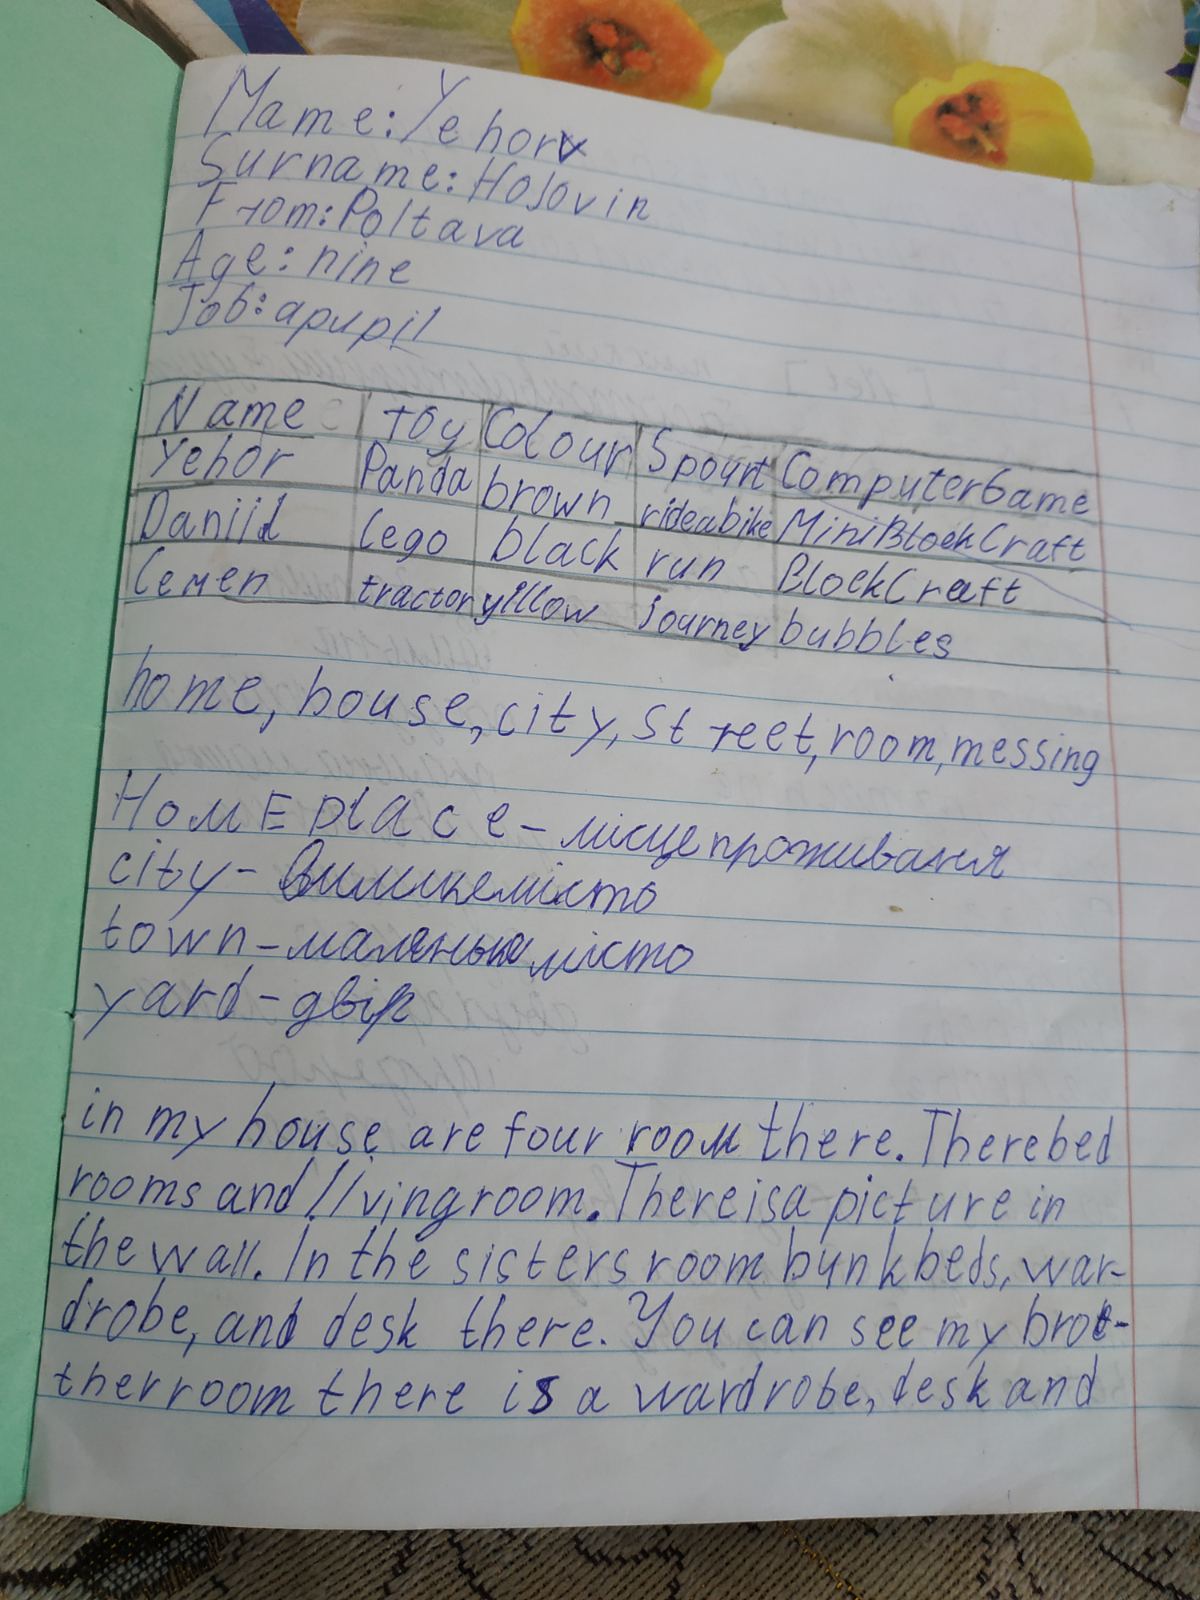 Name: Yehor
Surname: Holovin
From: Poltava
Age: nine
Job: a pupil
Name Toy Colour Spourt Computer Game
Yehor Panda brown ride a bike MiniBlockCraft
Daniil Lego black run BlockCraft
Семен tractor yillow journey bubbles
home, house, city, street, room, messing
HomE place - місце проживаня
city - вилике місто
town - маленьке місто
yard - двір
in my house are four room there. There bed
rooms and living room. There is a picture in
the wall. In the sisters room bunk beds, war-
drobe, and desk there. You can see my brot-
ther room there is a wardrobe, desk and